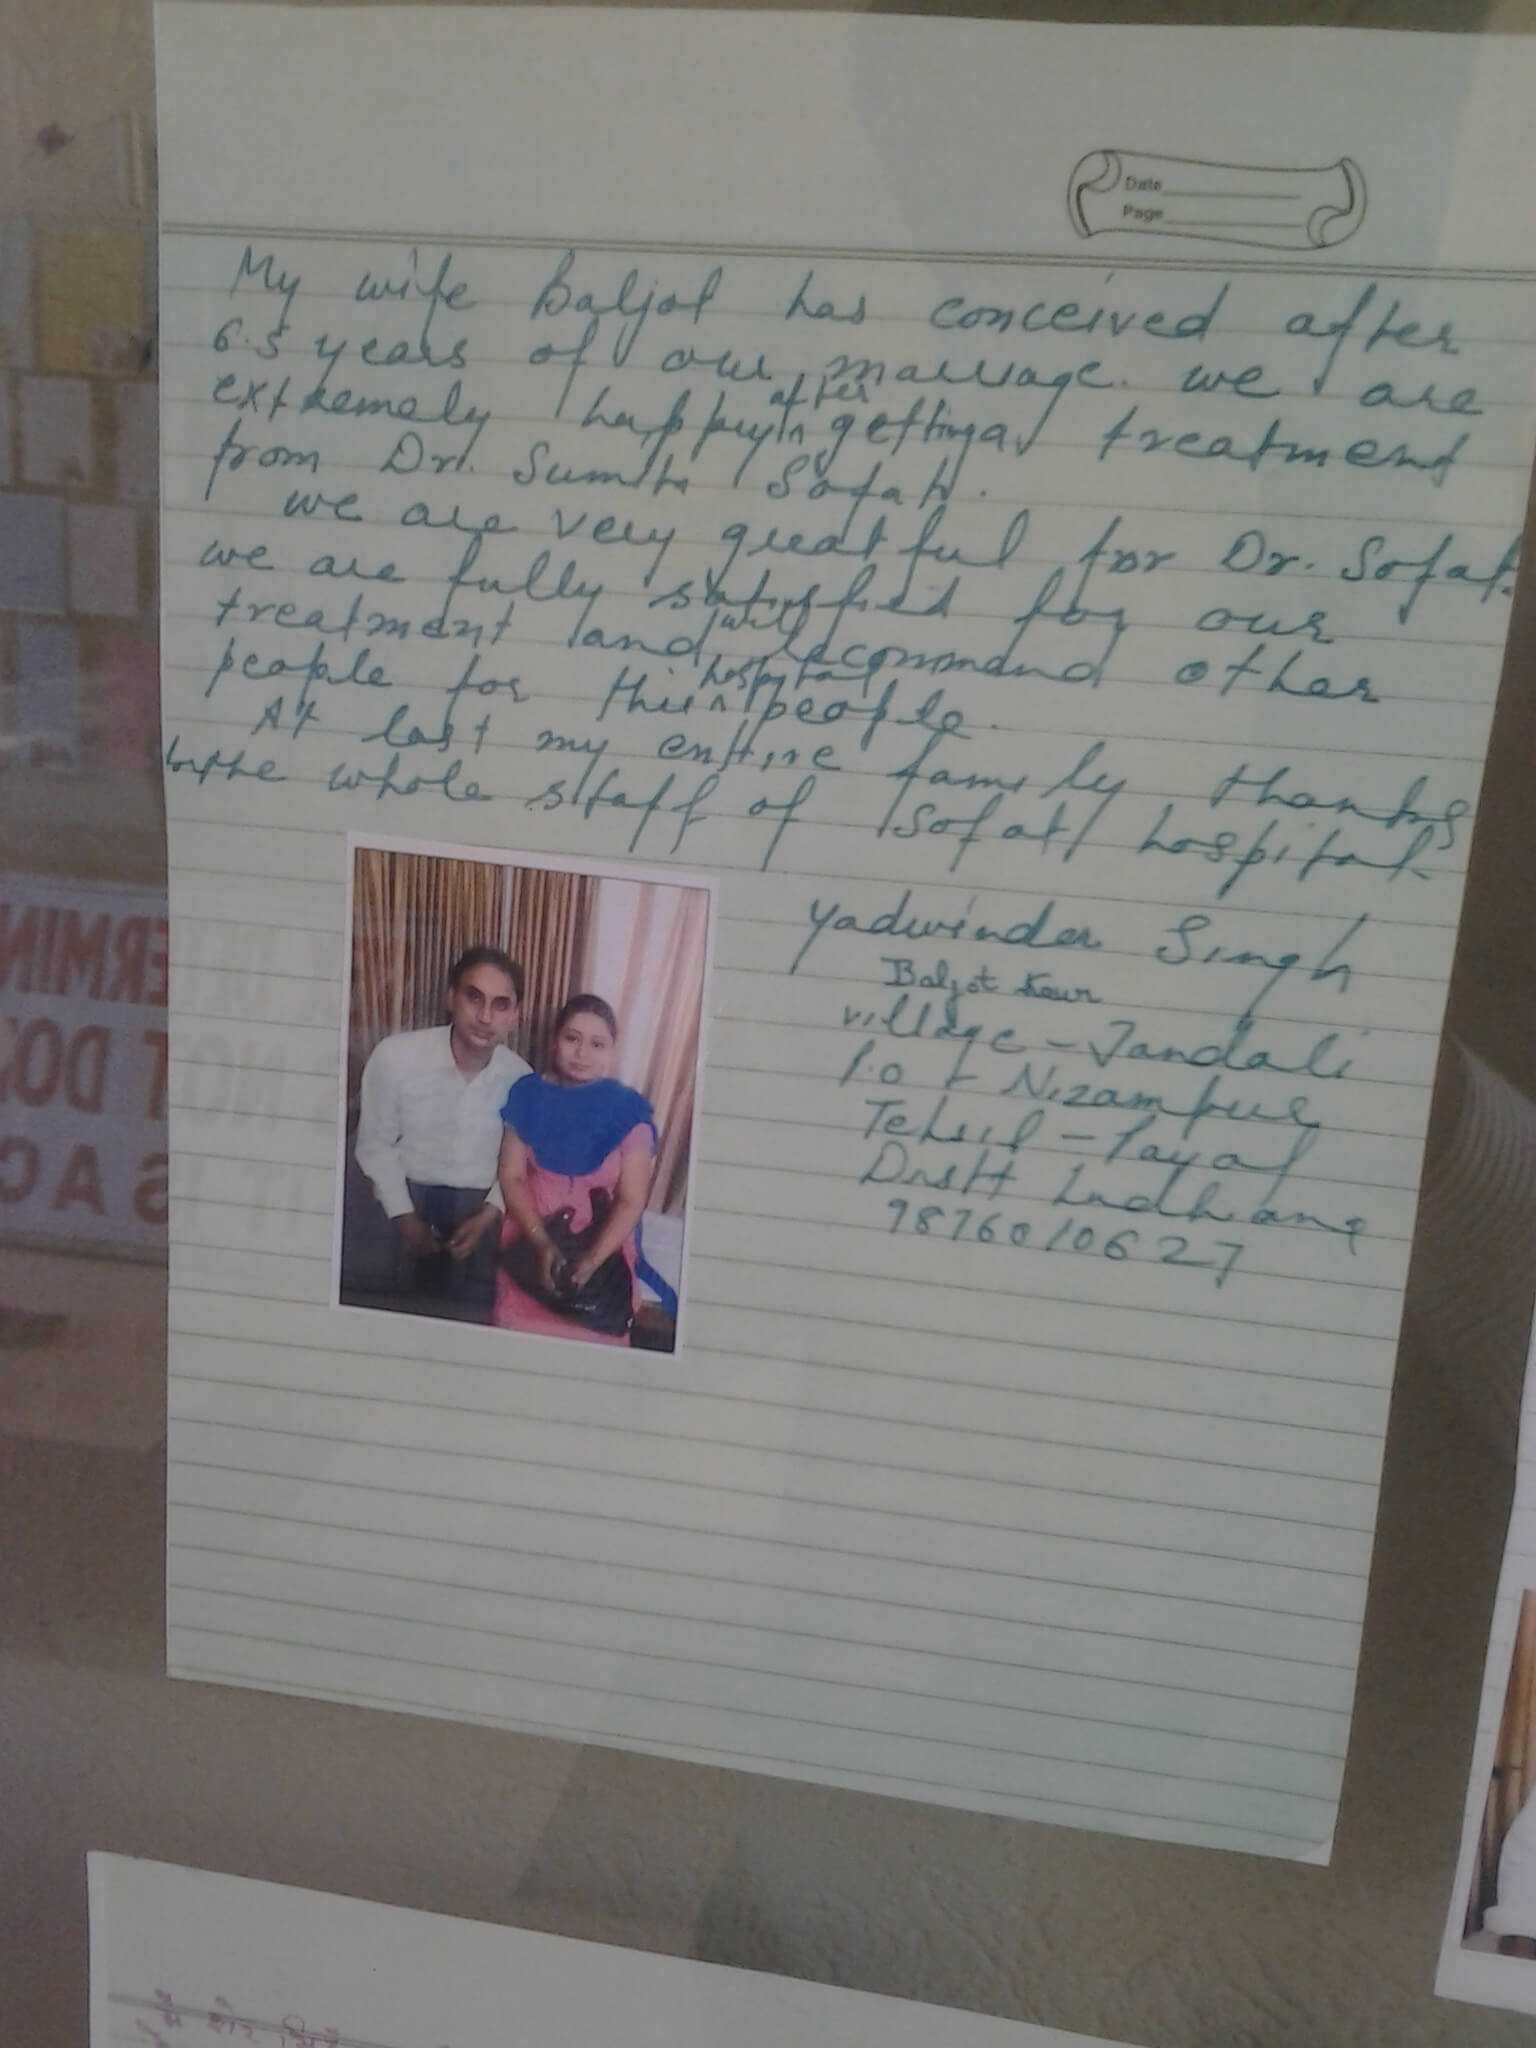 Date
Page
My wife Baljot has conceived after
6.5 years of our marriage. we are
extremely happy after getting treatment
from Dr. Sumita Sofat.
we are very greatful for Dr. Sofat.
we are fully satisfied for our
treatment and will recommend other
people for this hospital people.
At last my entire family thanks
the whole staff of Sofat hospital.
Yadwinder Singh
Baljot Kaur
village - Jandali
P.O - Nizampur
Tehsil - Payal
Distt Ludhiana
9876010627
ERMIN
T DO
IT IS A C